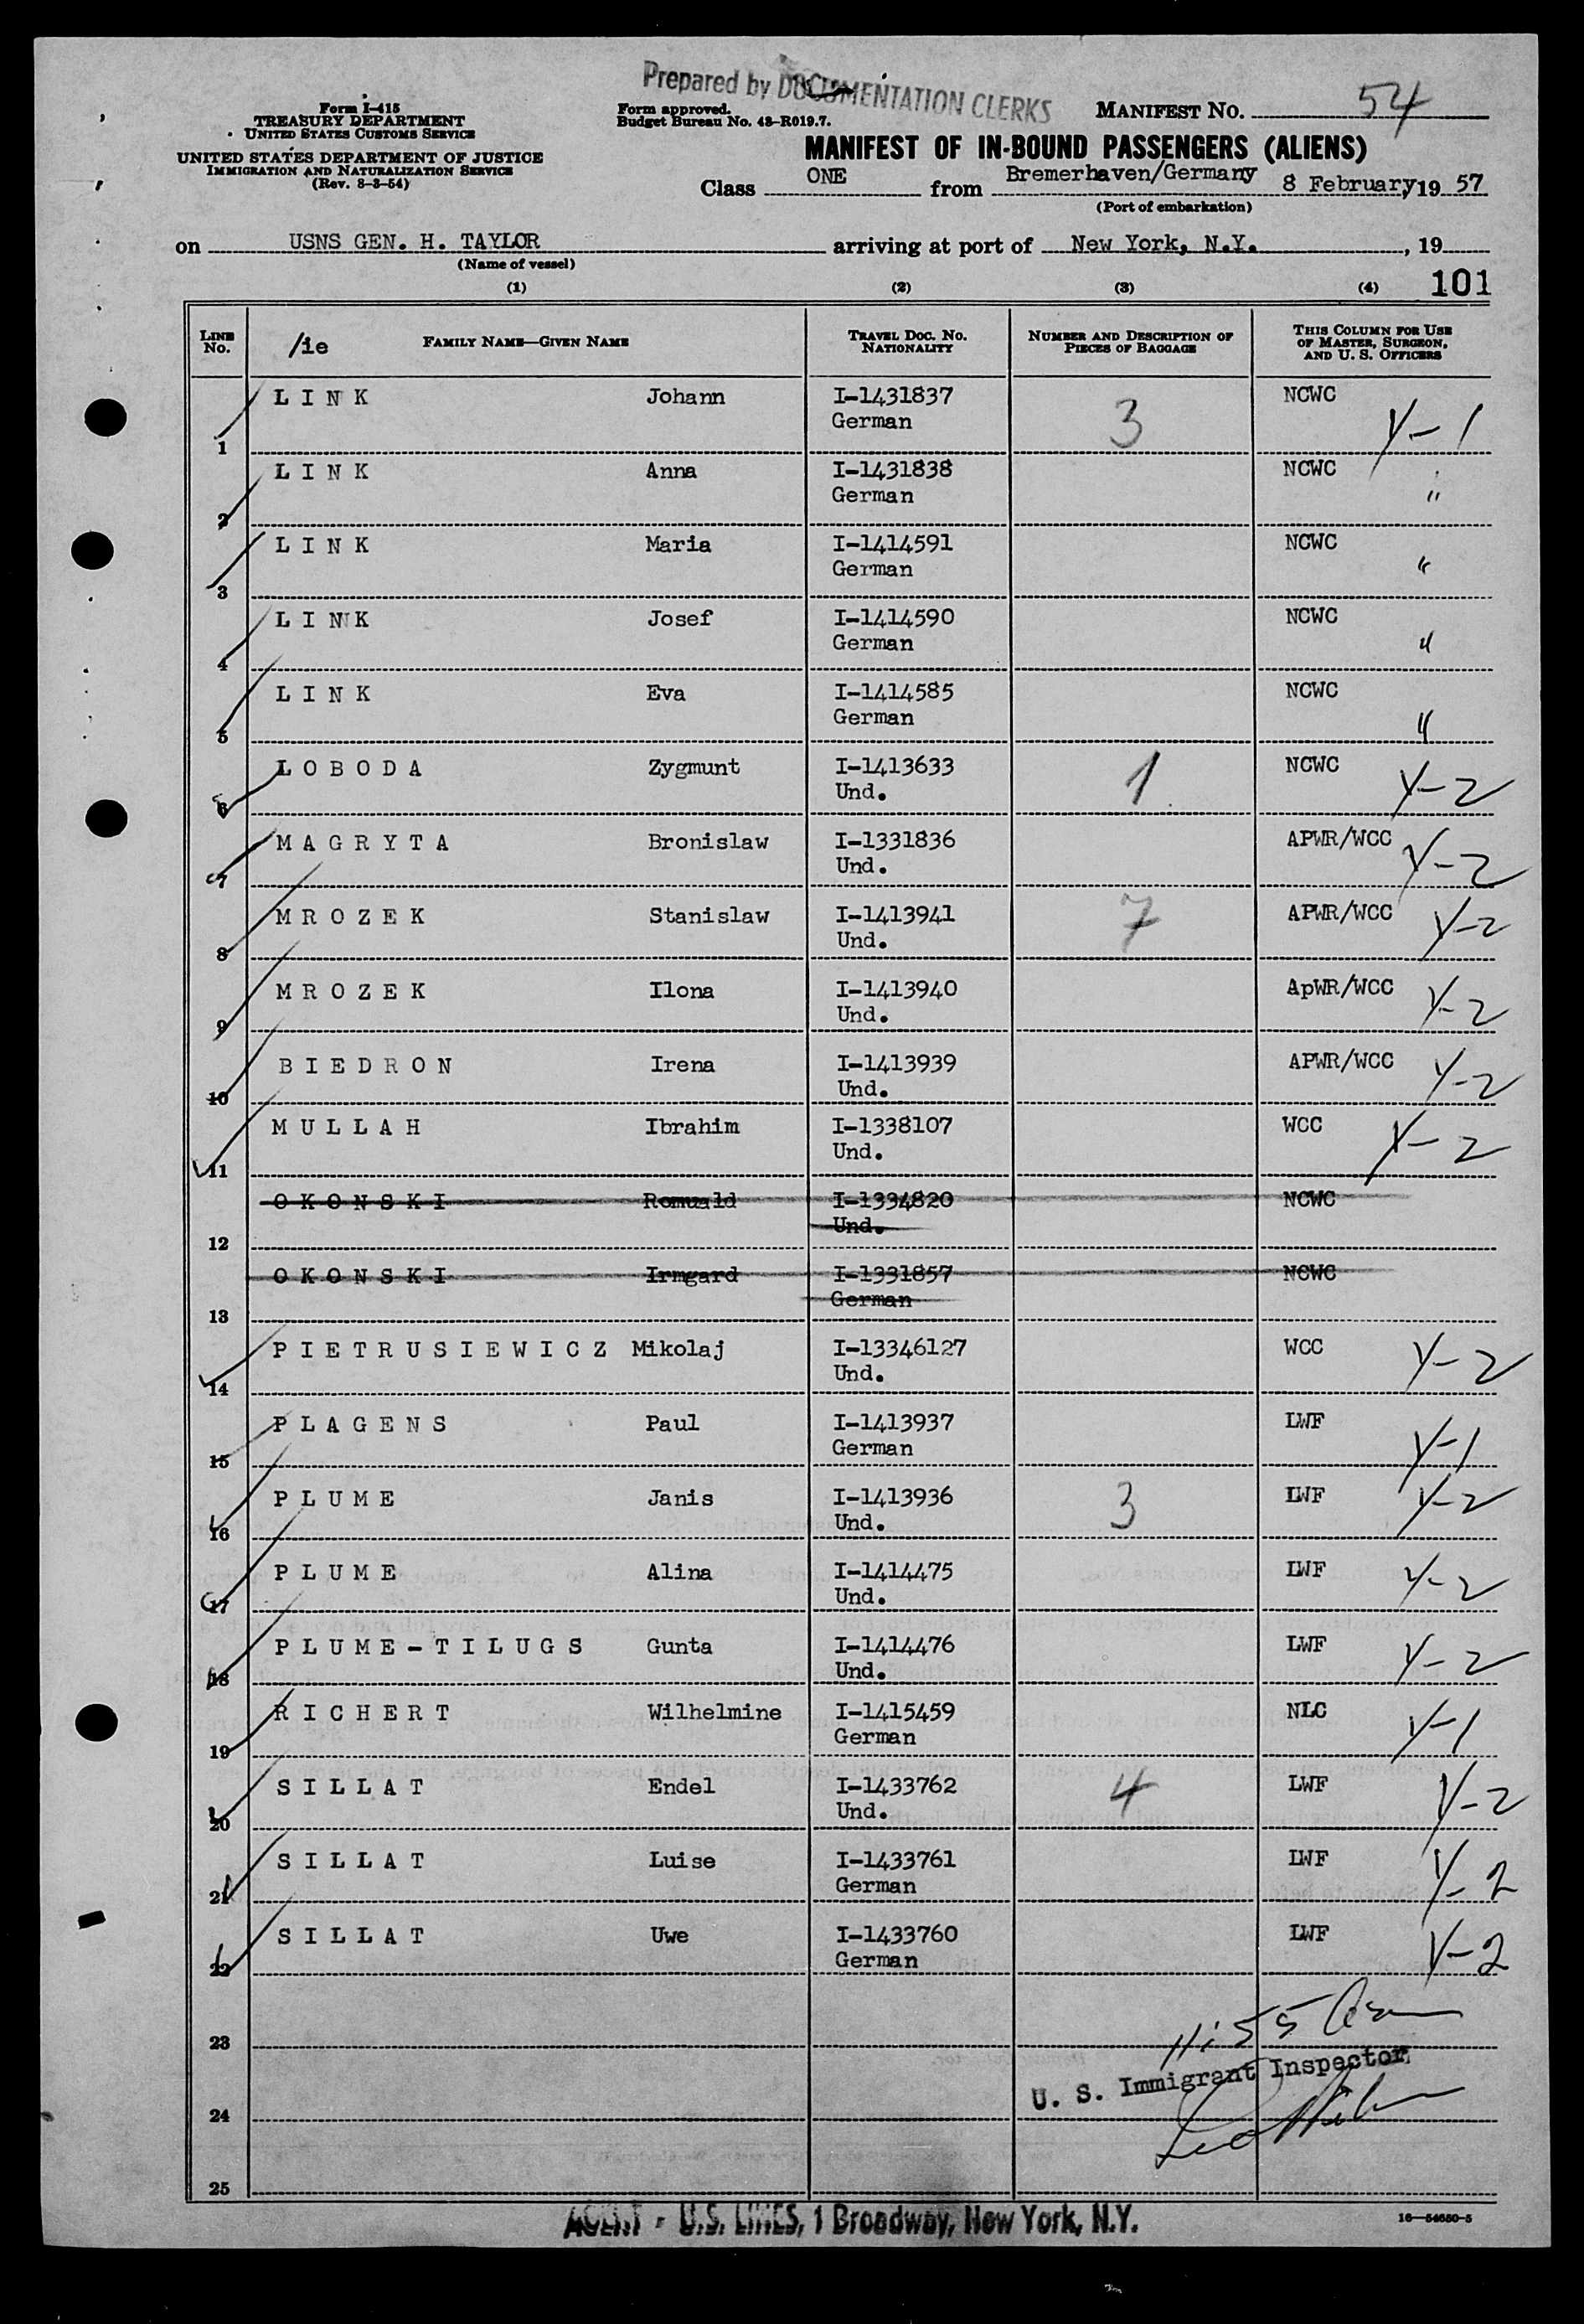 Prepared by DOCUMENTATION CLERKS
Form I-415
TREASURY DEPARTMENT
UNITED STATES CUSTOMS SERVICE
UNITED STATES DEPARTMENT OF JUSTICE
IMMIGRATION AND NATURALIZATION SERVICE
(Rev. 8-3-54)
Form approved.
Budget Bureau No. 43-R019.7.
MANIFEST NO. 54
MANIFEST OF IN-BOUND PASSENGERS (ALIENS)
Class ONE from Bremerhaven/Germany 8 February 19 57
(Port of embarkation)
on USNS GEN. H. TAYLOR arriving at port of New York, N.Y. , 19
(Name of vessel)
(1) (2) (3) (4) 101
LINE NO. /ie FAMILY NAME—GIVEN NAME TRAVEL DOC. NO. NATIONALITY NUMBER AND DESCRIPTION OF PIECES OF BAGGAGE THIS COLUMN FOR USE OF MASTER, SURGEON, AND U. S. OFFICERS
1 LINK Johann I-1431837 German 3 NCWC Y-1
2 LINK Anna I-1431838 German NCWC "
3 LINK Maria I-1414591 German NCWC "
4 LINK Josef I-1414590 German NCWC "
5 LINK Eva I-1414585 German NCWC "
6 LOBODA Zygmunt I-1413633 Und. 1 NCWC Y-2
7 MAGRYTA Bronislaw I-1331836 Und. APWR/WCC Y-2
8 MROZEK Stanislaw I-1413941 Und. 7 APWR/WCC Y-2
9 MROZEK Ilona I-1413940 Und. ApWR/WCC Y-2
10 BIEDRON Irena I-1413939 Und. APWR/WCC Y-2
11 MULLAH Ibrahim I-1338107 Und. WCC Y-2
12 OKONSKI Romuald I-1334820 Und. NCWC
13 OKONSKI Irmgard I-1331857 German NCWC
14 PIETRUSIEWICZ Mikolaj I-13346127 Und. WCC Y-2
15 PLAGENS Paul I-1413937 German LWF Y-1
16 PLUME Janis I-1413936 Und. 3 LWF Y-2
17 PLUME Alina I-1414475 Und. LWF Y-2
18 PLUME-TILUGS Gunta I-1414476 Und. LWF Y-2
19 RICHERT Wilhelmine I-1415459 German NLC Y-1
20 SILLAT Endel I-1433762 Und. 4 LWF Y-2
21 SILLAT Luise I-1433761 German LWF Y-2
22 SILLAT Uwe I-1433760 German LWF Y-2
23
U. S. Immigrant Inspector
24
25
AGENT - U.S. LINES, 1 Broadway, New York, N.Y.
16—54650-5